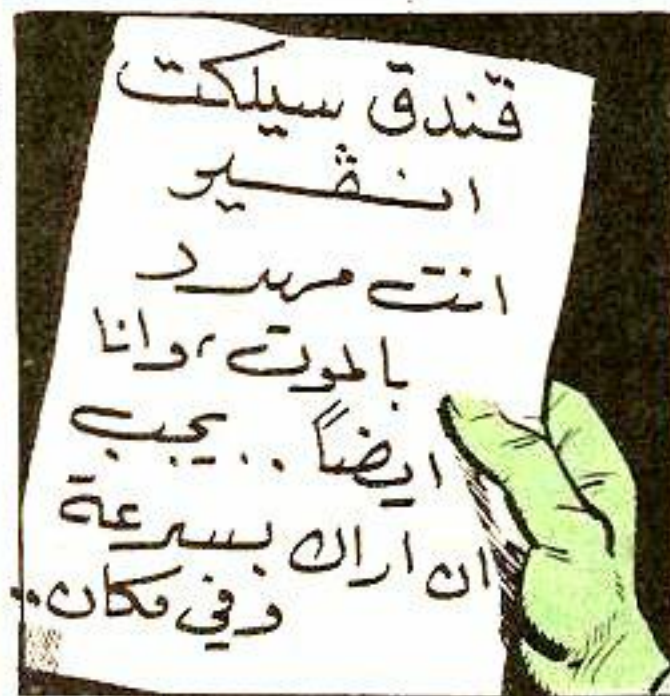 فندق سيلكت
انڤيو
انت مهدد
بالموت، وانا
ايضاً .. يجب
ان اراك بسرعة
وفي مكان..